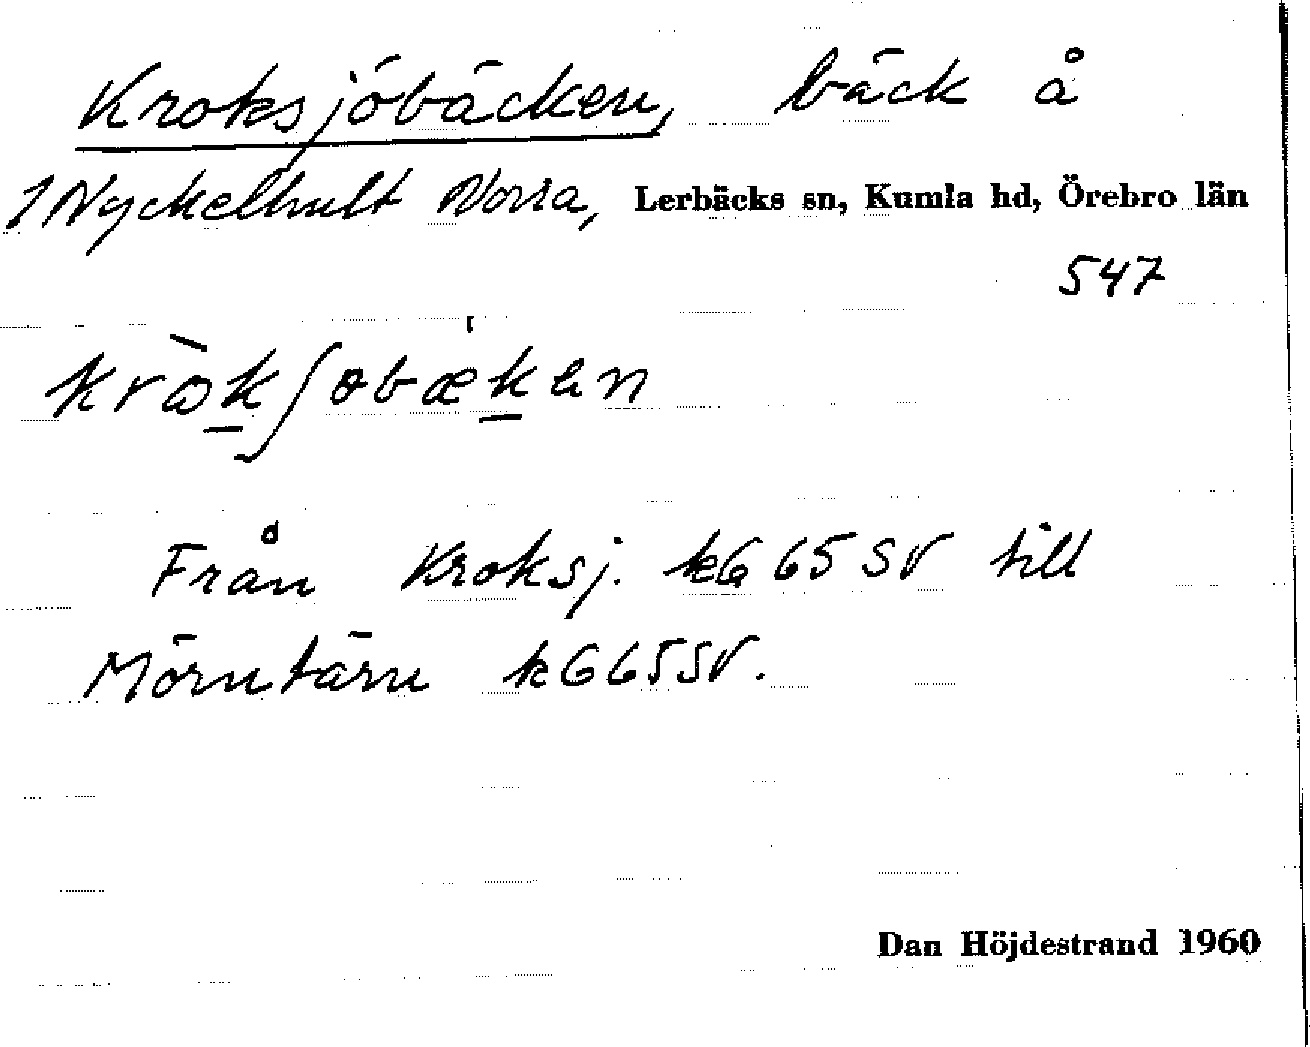 Kroksjöbäcken, bäck å
1 Nyckelhult Norra, Lerbäcks sn, Kumla hd, Örebro län
547
Från Kroksj. k G 65 SV till
Mörntärn k G 65 SV.
Dan Höjdestrand 1960